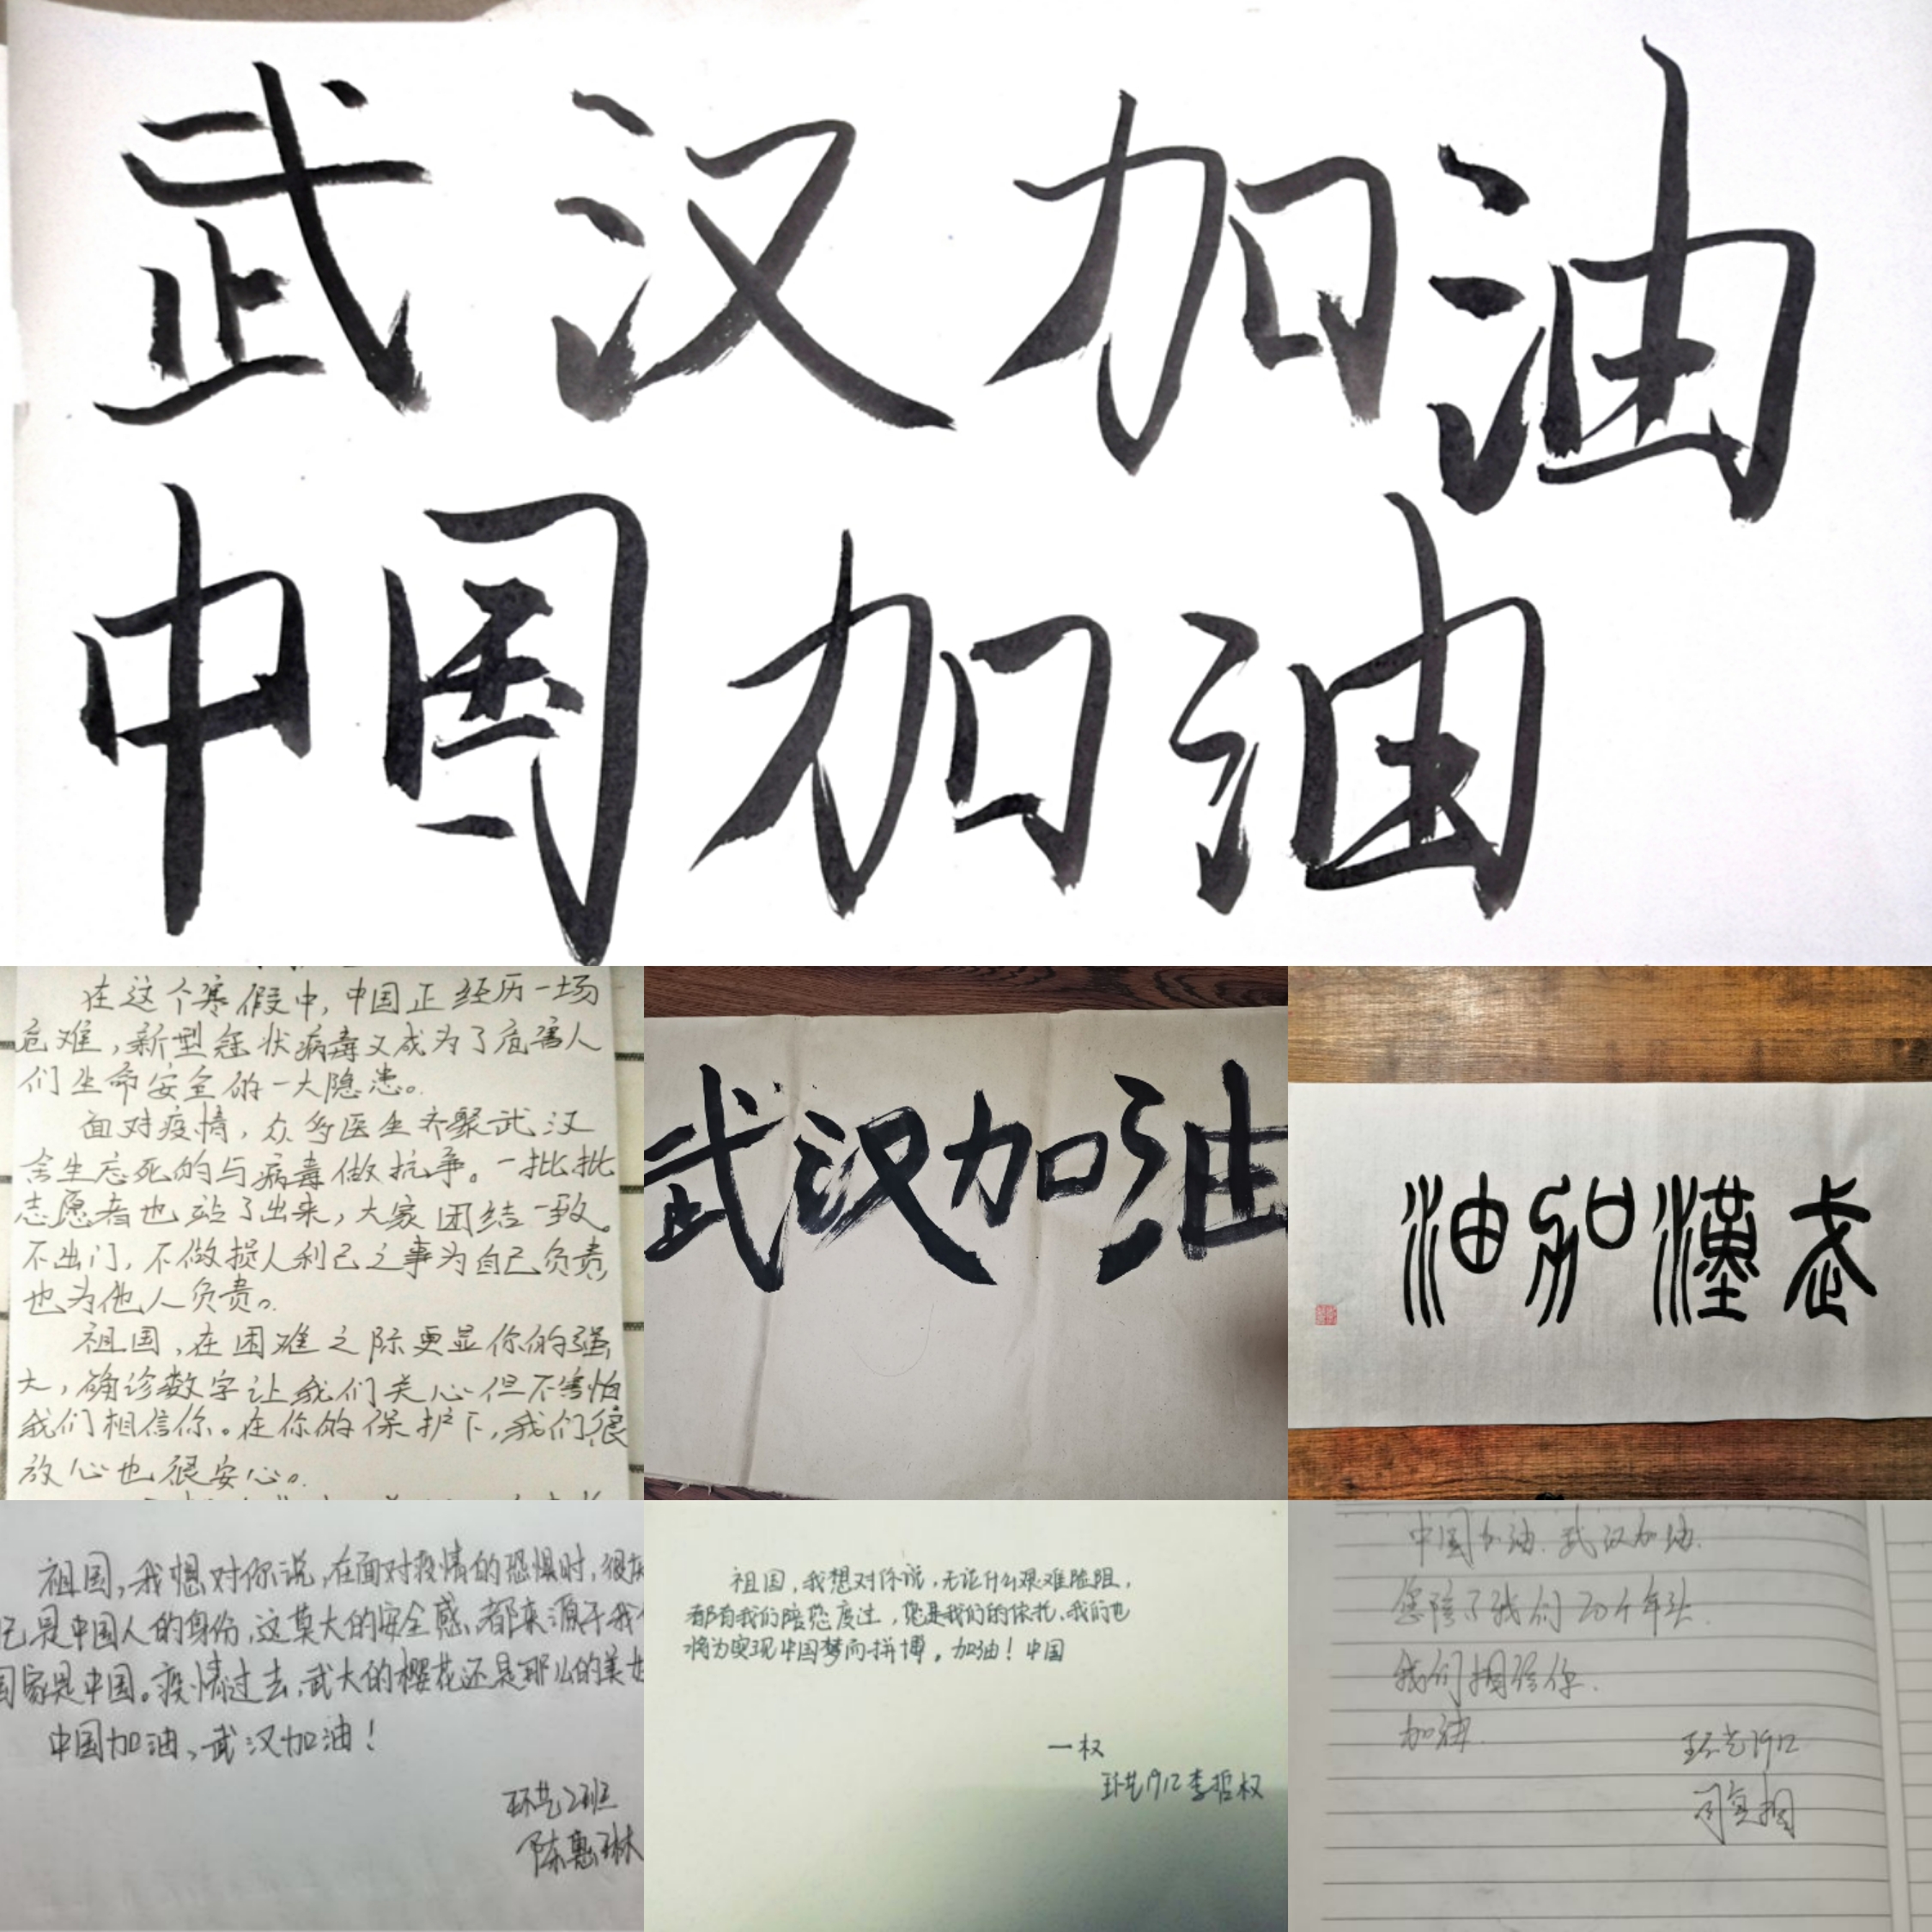 武汉加油
中国加油
在这个寒假中,中国正经历一场
危难,新型冠状病毒又成为了危害人
们生命安全的一大隐患。
面对疫情,众多医生齐聚武汉
舍生忘死的与病毒做抗争。一批批
志愿者也站了出来,大家团结一致。
不出门,不做损人利己之事为自己负责,
也为他人负责。
祖国,在困难之际更显你的强
大,确诊数字让我们关心但不害怕
我们相信你。在你的保护下,我们很
放心也很安心。
武汉加油
油加漢武
祖国,我想对你说,在面对疫情的恐惧时,很
是中国人的身份,这莫大的安全感,都来源于我
国家是中国。疫情过去,武大的樱花还是那么的美
中国加油、武汉加油!
环艺2班
陈惠琳
祖国,我想对你说,无论什么艰难险阻,
都有我们陪您度过,您是我们的依托,我们也
将为实现中国梦而拼博。加油!中国
一权
环艺1912李哲权
中国加油.武汉加油.
您陪了我们20个年头.
我们相信你.
加油.
环艺1912